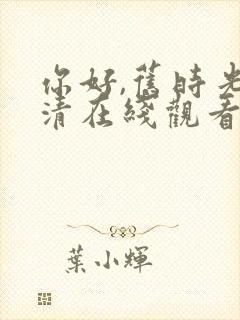 你好,舊時光
清在綫觀看
葉小輝